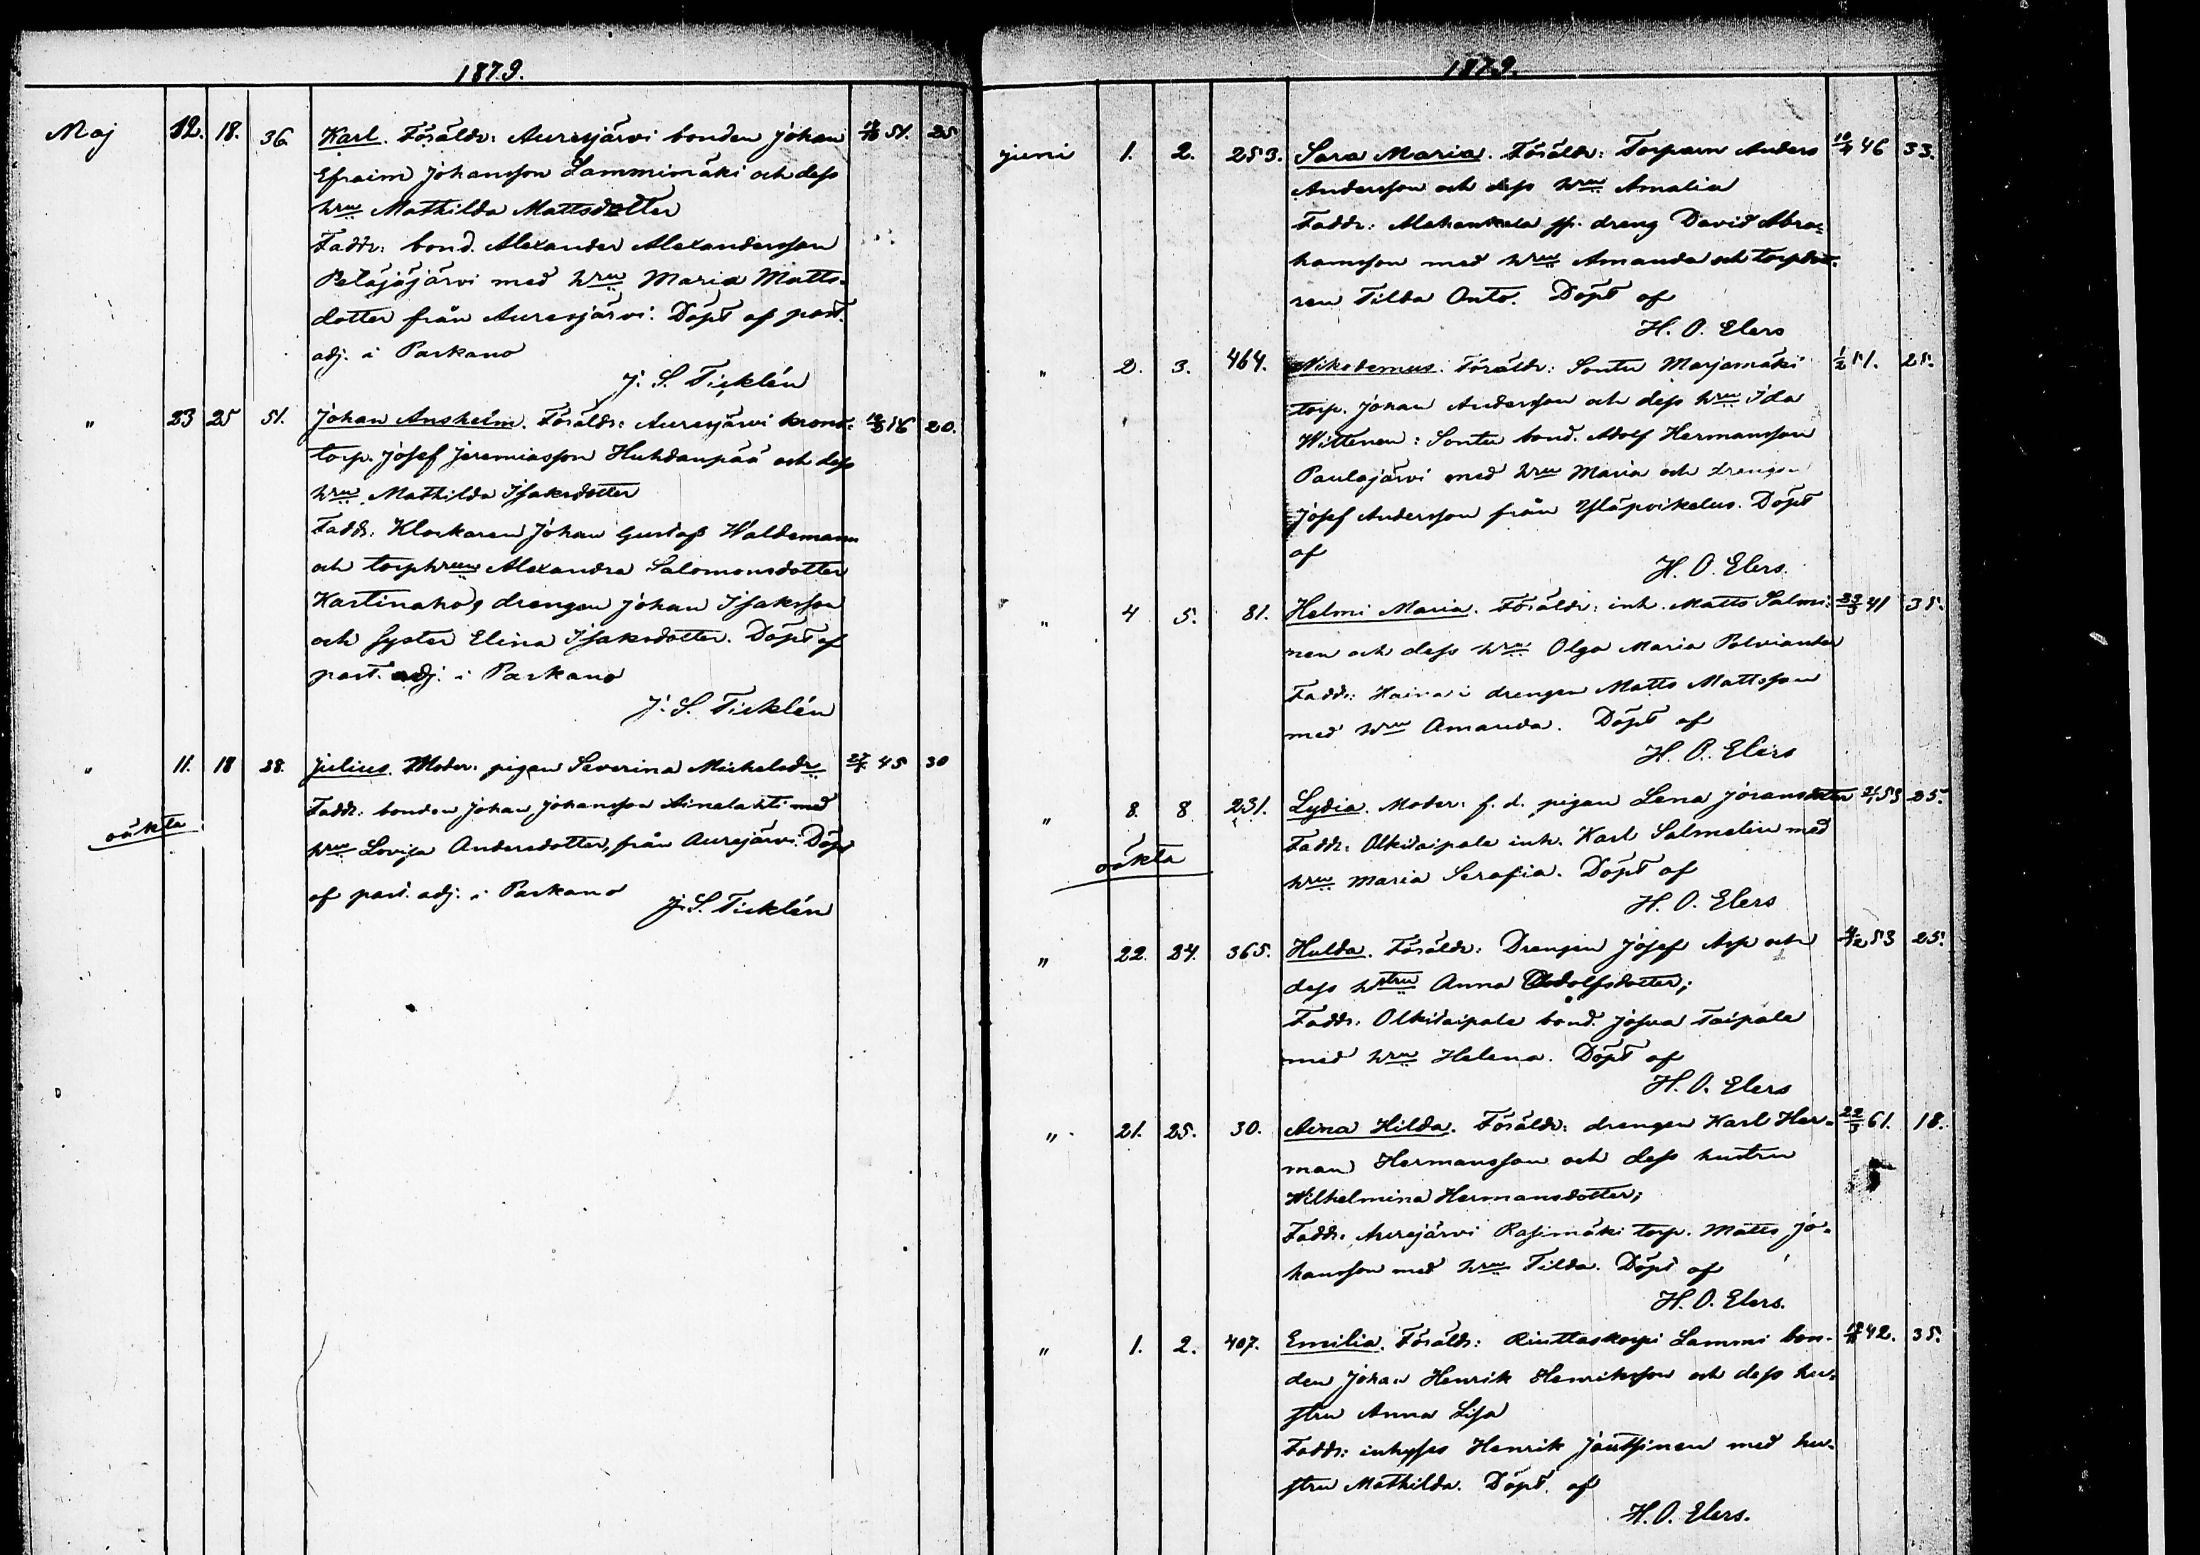 1879.
Maj 12. 18. 36 Karl. Föräldr: Aurejärvi bonden Johan 54. 25
Efraim Johansson Lammimäki och dess
hru Mathilda Mattsdotter
Faddr: bond. Alexander Alexandersson
Petäjäjärvi med hru Maria Matts-
dotter från Aurejärvi. Döpt af past.
adj. i Parkano
J. S. Ticklén
" 23 25 51. Johan Anshelm. Föräldr: Aurejärvi krono- 20.
torp. Josef Jeremiasson Huhdanpää och dess
hru Mathilda Isaksdotter
Faddr. Klockaren Johan Gustaf Waldemann
och torphrun Alexandra Salomonsdotter
drengen Johan Isaksson
och syster Elina Isaksdotter. Döpt af
past. adj. i Parkano
J. S. Ticklén
" 11. 18 38. Julius. Moder: pigan Severina Michelsdr 45 30
Faddr: bonden Johan Johansson med
oäkta
hru Lovisa Andersdotter, från Aurejärvi. Döpt
af past. adj. i Parkano
J. S. Ticklén
1879.
Juni 1. 2. 253. Sara Maria. Föräldr: Torparn Anders 46 33.
Andersson och dess hru Amalia
Faddr: dreng David Abra-
hamsson med hru Amanda och
ren Tilda Onto. Döpt af
H. O. Elers
" 2. 3. 464. Nikodemus. Föräldr: Sontu Marjamäki 1/2 51. 28.
torp. Johan Andersson och dess hru Ida
Wittnen: Sontu bond. Adolf Hermansson
Paulajärvi med hru Maria och drengen
Josef Andersson från Döpt
af
H. O. Elers.
" 4 5. 81. Helmi Maria. Föräldr: inh. Matts Salmi- 41 38.
nen och dess hru Olga Maria Polviander
Faddr: drengen Matts Mattsson
med hru Amanda. Döpt af
H. O. Elers
" 8. 8 231. Lydia. Moder: f. d. pigan Lena Joransdotter 53 25.
Faddr: Olkitaipale inh. Karl Salmelin med
oäkta
hru Maria Serafia. Döpt af
H. O. Elers
" 22. 24. 365. Hulda. Föräldr: Drengen Josef Asp och 53 25.
dess hstru Anna Adolfsdotter;
Faddr. Olkitaipale bond. Josua Taipale
med hru Helena. Döpt af
H. O. Elers
" 21. 25. 30. Aina Hilda. Föräldr: drengen Karl Her- 61. 18.
man Hermansson och dess hustru
Wilhelmina Hermansdotter;
Faddr. Aurejärvi Rasimäki torp. Matts Jo-
hansson med hru Tilda. Döpt af
H. O. Elers.
" 1. 2. 407. Emilia. Föräldr: Riuttaskorpi Lammi bon- 42. 35.
den Johan Henrik Henriksson och dess hu-
stru Anna Lisa
Faddr: inhyses Henrik Joutsinen med hu-
stru Mathilda. Döpt. af
H. O. Elers.